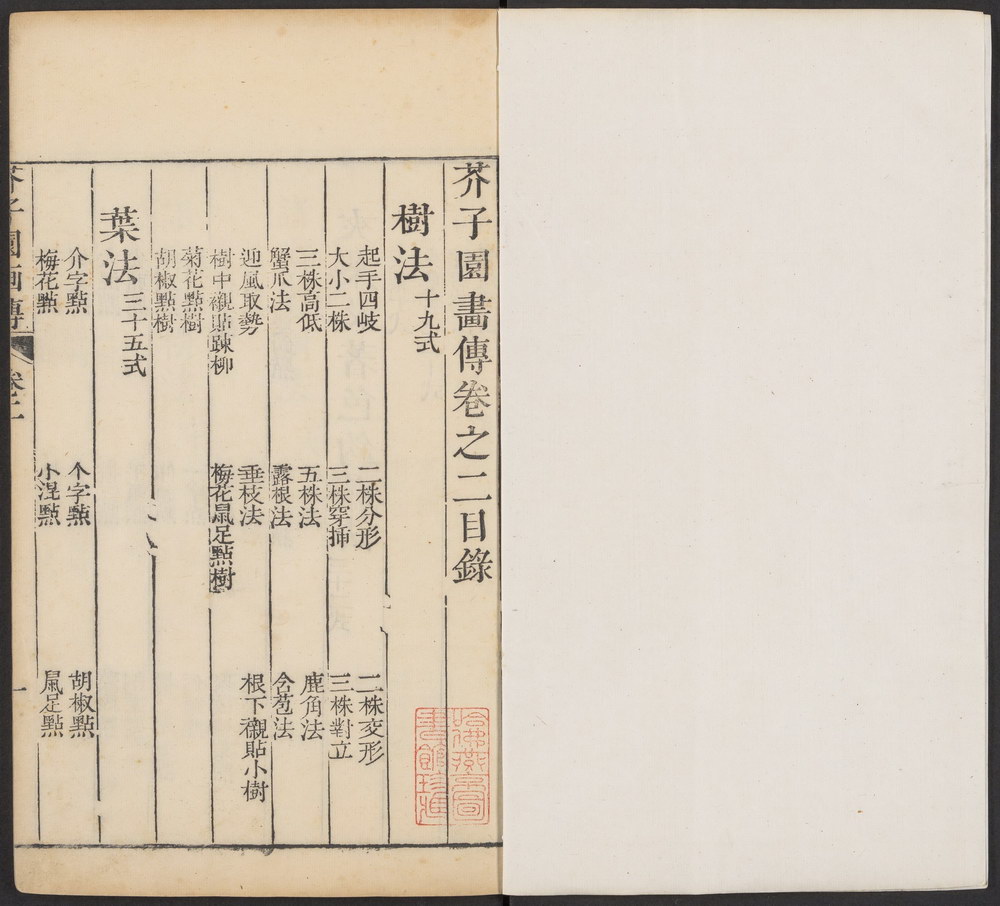 芥子園畫傳卷之二目錄
樹法 十九式
起手四歧 二株分形 二株交形
大小二株 三株穿挿 三株對立
三株高低 五株法 鹿角法
蟹爪法 露根法 含苞法
迎風取勢 垂枝法 根下襯貼小樹
樹中襯貼踈柳 梅花鼠足點樹
菊花點樹
胡椒點樹
葉法 三十五式
介字點 个字點 胡椒點
梅花點 小混點 鼠足點
芥子園畫傳 卷二 一
哈佛燕京圖
書館珍藏